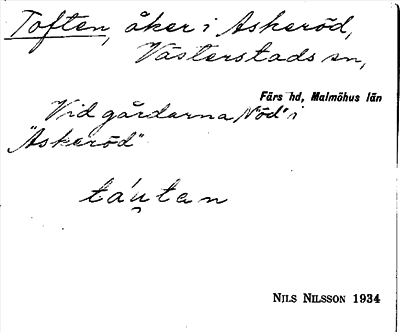 Toften, åker i Askeröd,
Västerstads sn,
Färs hd, Malmöhus län
Vid gårdarna N:o 1 i
"Askeröd"
táu̯tan
NILS NILSSON 1934